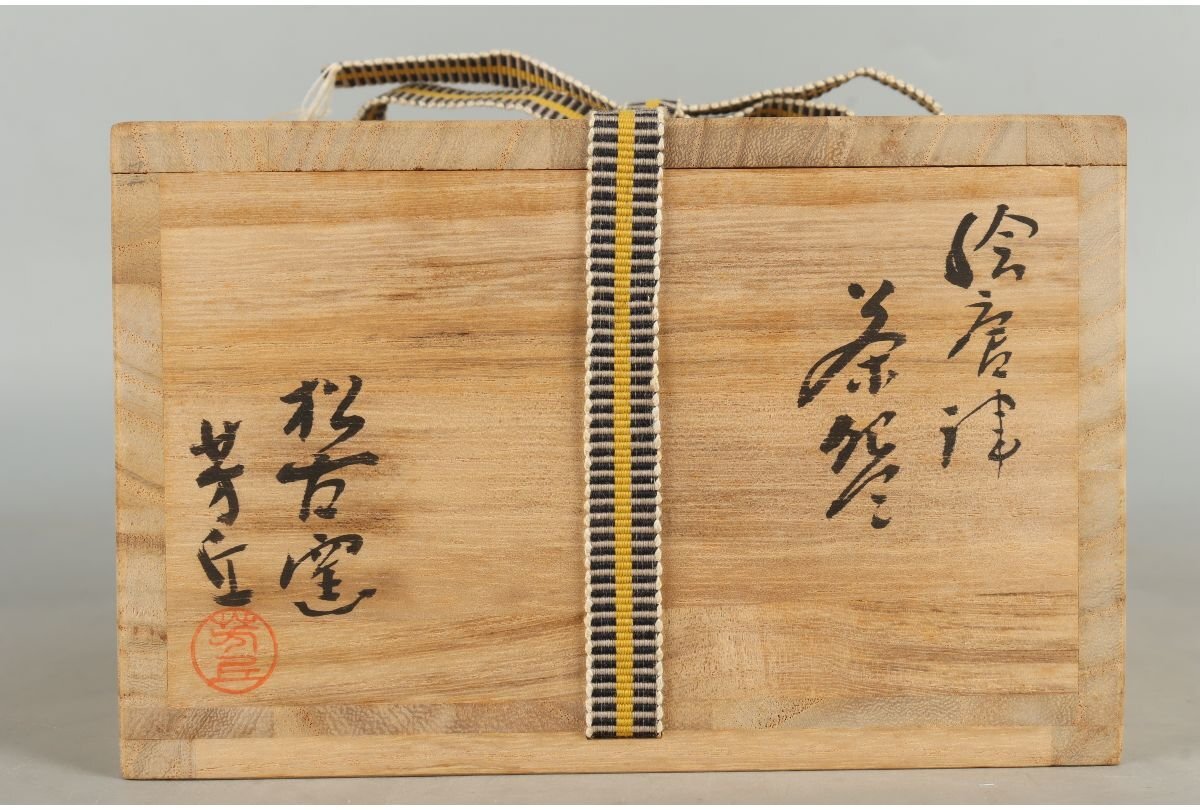 絵唐津
茶盌
松古窯
芳丘
芳丘